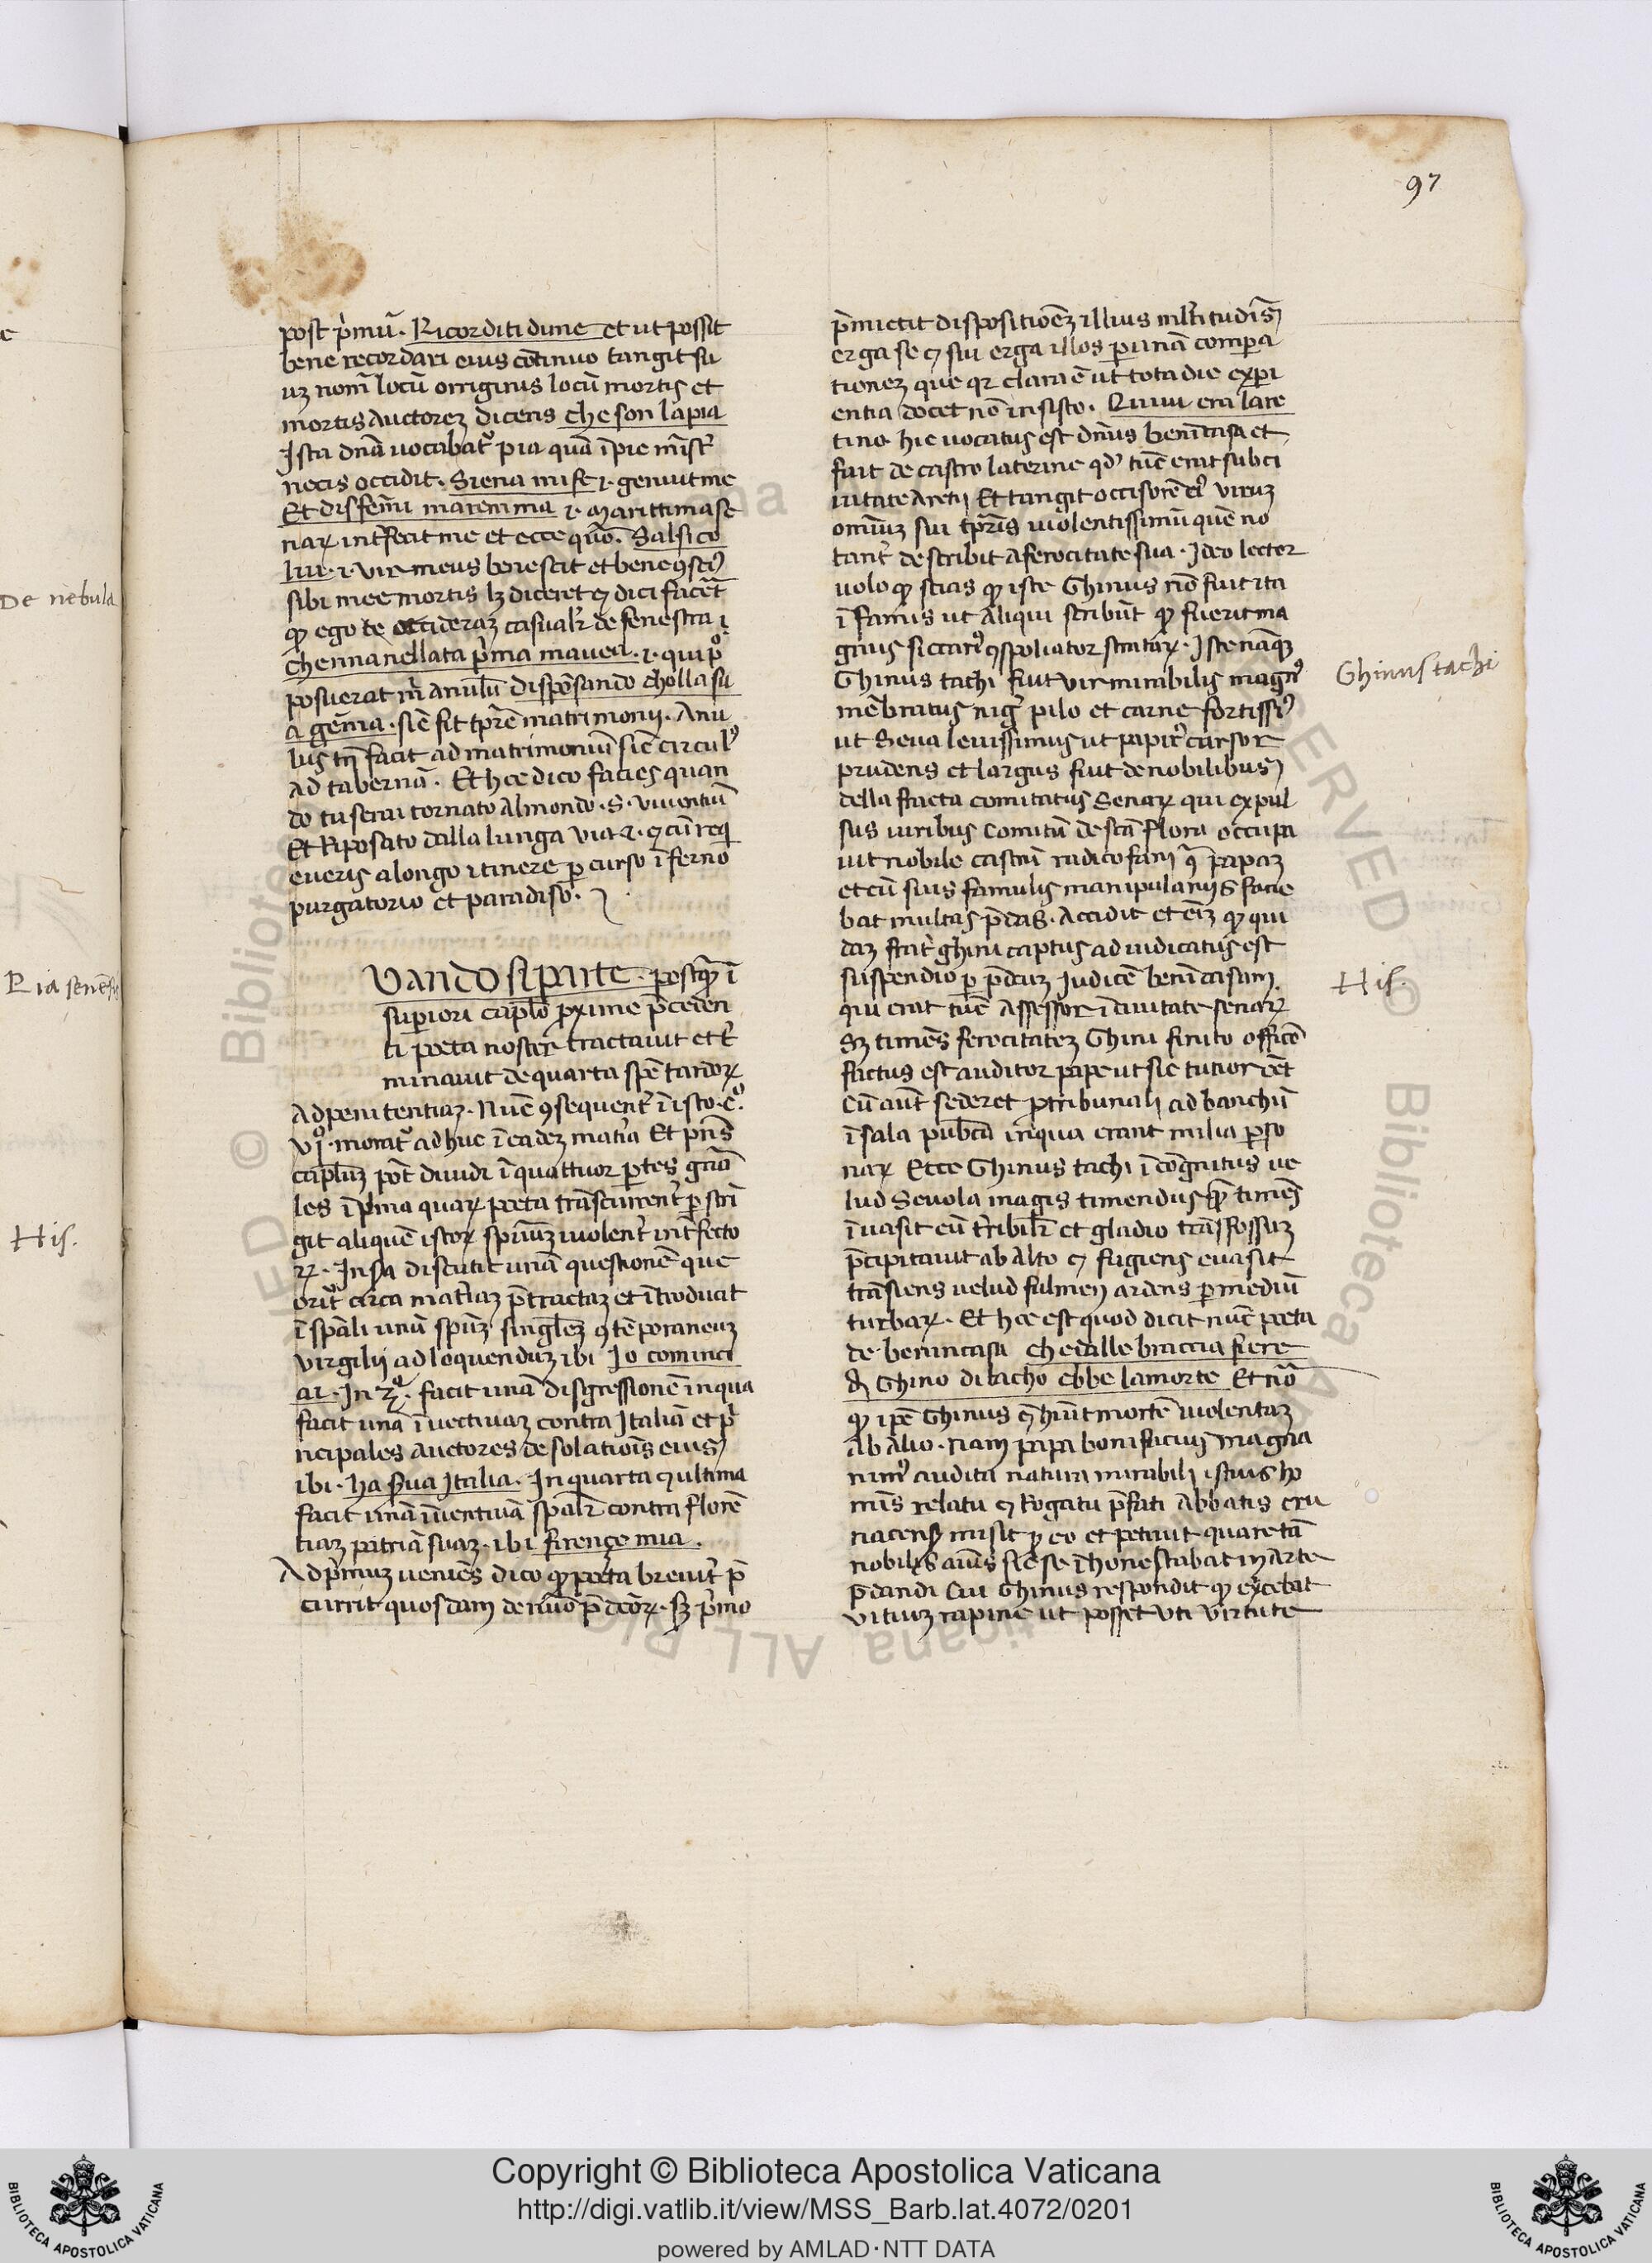 97
post p̄mū. Ricorditi dime et ut possit
bene recordari eius cōtinuo tangit su
uz nom̄ locū originis locū mortis et
mortis auctorez dicens che son la pia
Ista dn̄a uocabat᷑ pia quā īpie
necis occidit. Siena mi fe .i. genuit me
Et disfemi maremma .i. Marittima se
naꝝ int̄fecit me et ecce quō. Salsi co
lui .i. vir meus bene scit et bene ꝯsci᷒
sibi mee mortis lꝫ diceret et dici facēt
ꝙ ego cecideraz casualr̄ de fenestra
che nnanellata p̄ma mauea .i. qui p᷒
posuerat m̄ anulū dispōsando cholla su
a gēma. sic̄ fit tp̄re matrimonij. Anu
lus tn̄ facit ad matrimoniū sic̄ circul᷒
ad tabernā. Et hec dico facies quan
do tu serai tornato al mondo .s. viuentiū
Et riposato dalla lunga via .i. et cū req
eueris a longo itinere per curso īferno
purgatorio et paradiso.
VANDO si parte. postꝙ ī
superiori cap̄lo ꝓxime p̄ceden
ti poeta noster tractauit et t̄
minauit de quarta spē tardoꝝ
ad penitentiaz. Nūc ꝯsequent̄ ī isto .c᷒.
vj᷒. morat᷑ adhuc ī eadez mat̄ia Et p̄ns
cap̄luz pōt diuidi ī quattuor ꝑtes gn̄a
les ī p̄ma quaꝝ poeta trāscurrent̄ ꝑstrī
git aliquē istoꝝ spirituuz uiolent̄ int̄fecto
ꝝ. In s̄a discutit unā questionē que
orit᷑ circa mat̄iaz p̄tractaz et ītroducit
ī spāli unū spūz singl̄ez ꝯtēporaneuz
virgilij ad loquenduz ibi Io cominci
ai. In 3ᵃ. facit unā disgressionē in qua
facit unā īuectiuaz contra Italiā et pr̄
ncipales auctores desolatiōis eius
ibi. ha s̄ua Italia. In quarta et ultima
facit unā īuentiuā spālr̄ contra florē
tiaz patriā suaz. ibi firençe mia.
Ad p̄muz ueniēs dico ꝙ poeta breuit̄ p̄
currit quosdam de nūo p̄dc̄oꝝ. Sꝫ p̄mo
p̄mictit dispositiōez illius mltitudīs
erga se et sui erga illos ꝑ unā compa
tionez que qꝛ clara ē ut tota die exꝑi
entia docet nō insisto. Quiui era lare
tino hic uocatus est dn̄us benīcasa et
fuit de castro laterine qd̄ tūc erat sub ci
uitate Aretij Et tangit occisorē ei᷒ viruz
omniuz sui tp̄ris uiolentissimū quē no
tant̄ describit a ferocitate sua. Ideo lector
uolo ꝙ scias ꝙ iste Ghinus nō fuit ita
īfamis ut aliqui scribūt ꝙ fuerit ma
gnus siccari᷒ et spoliator strataꝝ. Iste nāqꝫ
Ghinus tachi fuit vir mirabilis magn᷒
mēbratus nig̃ pilo et carne fortissi᷒
ut Seua leuissimus ut papir᷒ cursor
prudens et largus fuit de nobilibus
della fracta comitatus Senaꝝ qui expul
sus uiribus comitū de scā flora occupa
uit nobile castrū radicofani papaz
et cū suis famulis manipularijs facie
bat multas p̄das. Accidit et eīz ꝙ qui
daz frat̄ ghini captus adiudicatus est
suspendio ꝑ p̄dcuz Iudicē benīcasam
qui erat tūc assessor ī ciuitate senaꝝ
Sꝫ timēs ferocitatez Ghini finito officō
factus est auditor pape ut sic tutior eēt
Cū aūt sederet ꝓ tribunali ad banchū
ī sala pub̄ca in qua erant milia ꝑso
naꝝ Ecce Ghinus tachi īcognitus ue
lud Seuola magis timendus ꝙ̄ timēs
īuasit eū t̄ribilr̄ et gladio trāsfossuz
p̄cipitauit ab alto et fugiens euasit
trāsiens uelud fulmen ardens ꝑ mediū
turbaꝝ. Et hec est quod dicit nūc poeta
de benincasa che dalle braccia fiere
di Ghino di tacho ebbe la morte Et nō
ꝙ ipē Ghinus nō hūit mortē uiolentaz
ab alio. nam papa bonifacius magna
nim᷒ audita natura mirabili istius ho
minis relatu et rogatu p̄fati Abbatis clu
niacensis misit ꝓ eo et petiuit quare tā
nobilis aīus sic se īhonestabat in arte
p̄dandi Cui Ghinus respondit ꝙ ex̄cebat
vitiuz rapine ut posset uti virtute
Ghinus tachi
His.
De nebula
Pia senēsis
His.
Copyright © Biblioteca Apostolica Vaticana
http://digi.vatlib.it/view/MSS_Barb.lat.4072/0201
powered by AMLAD·NTT DATA
BIBLIOTECA APOSTOLICA VATICANA
BIBLIOTECA APOSTOLICA VATICANA